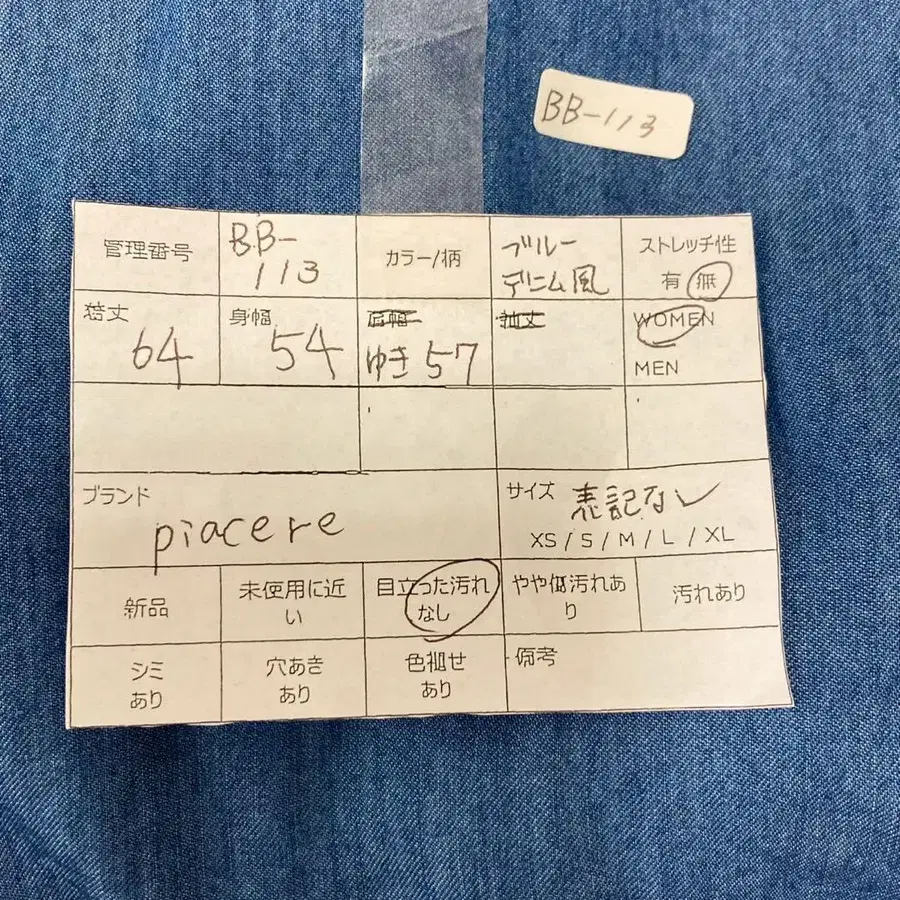 BB-113
管理番号
BB-
113
カラー/柄
ブルー
デニム風
ストレッチ性
有 無
着丈
64
身幅
54
肩幅
ゆき 57
袖丈
WOMEN
MEN
ブランド
piacere
サイズ 表記なし
XS / S / M / L / XL
新品
未使用に近
い
目立った汚れ
なし
やや傷汚れあ
り
汚れあり
シミ
あり
穴あき
あり
色褪せ
あり
備考